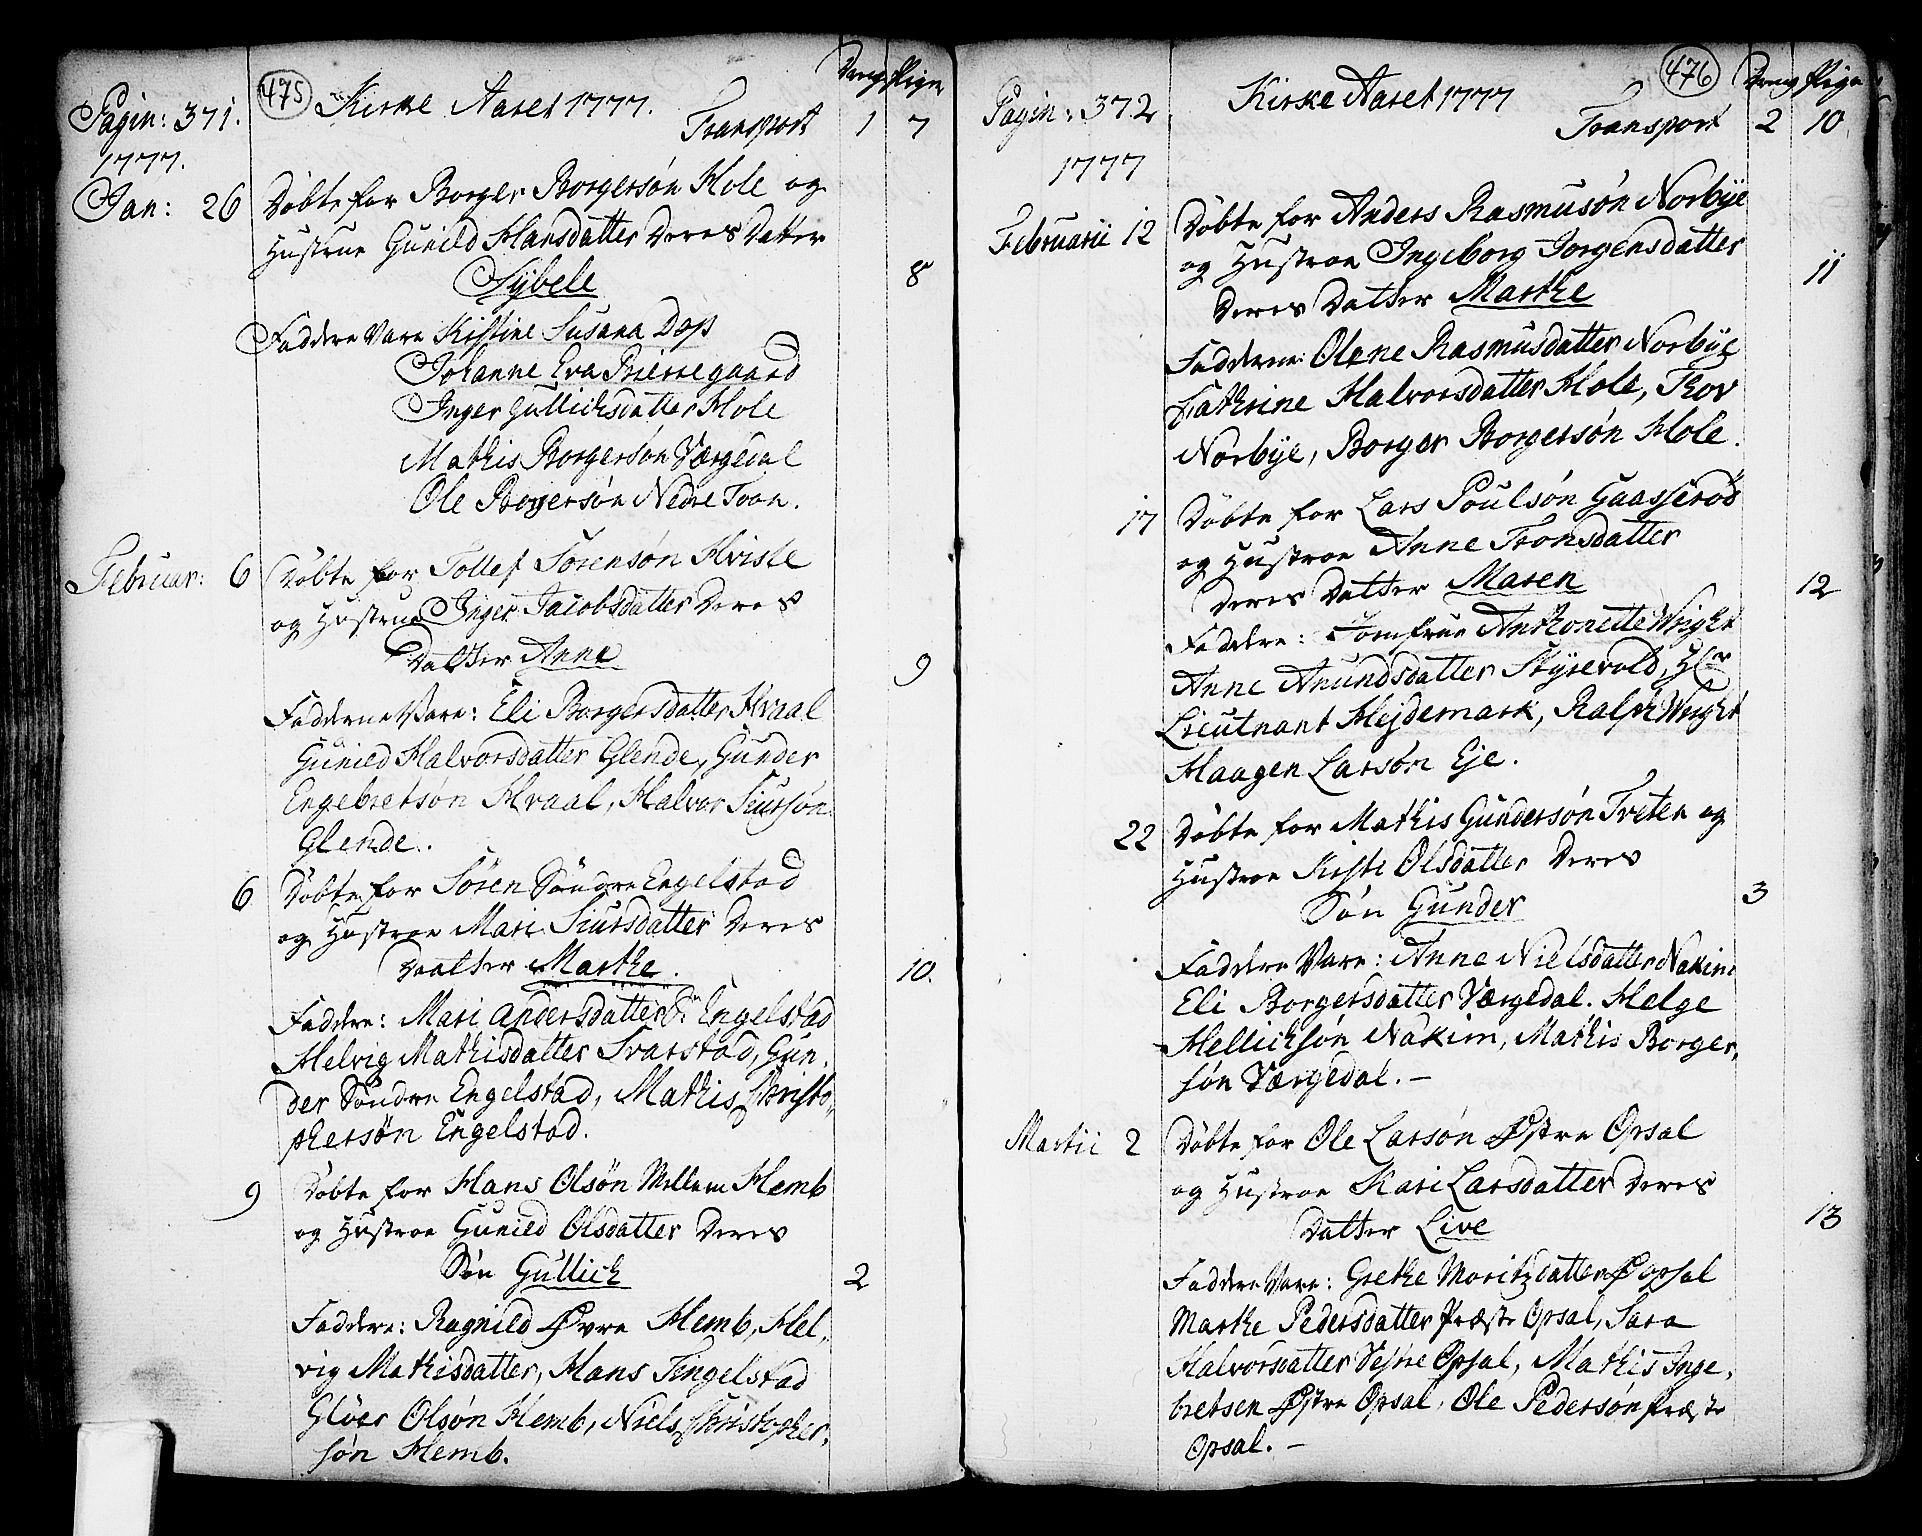 Pagin: 371.
475
Kirke Aaret 1777.
Dreng Pige
Transport 1 7
1777.
Jan: 26 Döbte for Borger Borgersön Hole og
Hustrue Gunild Hansdatter Deres Datter
Sÿbele
8
Faddere Vare Kistine Susana Dop
Johanne Eva Bierregaard
Inger Gullichsdatter Hole
Mathis Borgersön Værgedal
Ole Borgersön Nedre Toon.
Februar: 6 Döbte for Tollef Sörensön Hvisle
og Hustrue Inger Jacobsdatter Deres
Datter Anne
9
Fadderne Vare: Eli Borgersdatter Hvaal
Gunild Halvorsdatter Glende, Gunder
Engebretsön Hvaal, Halvor Siursön
Glende.
6 Döbte for Sören Söndre Engelstad
og Hustroe Mari Siursdatter Deres
Daatter Marthe.
10.
Faddere: Mari Andersdatter S: Engelstad
Helvig Mathisdatter Svarstad, Gun,
der Söndre Engelstad, Mathis Christo,
phersön Engelstad.
9 Döbte for Hans Olsön Mellem Hemb
og Hustroe Gunild Olsdatter Deres
Sön Gullich
2
Faddere: Ragnild Øvre Hemb, Hel,
vig Mathisdatter, Hans Tingelstad
Glöer Olsön Hemb, Niels Christopher,
sön Hemb.
Pagin: 372
476
Kirke Aaret 1777
Dreng Pige
Transport 2 10
1777
Februarii 12 Döbte for Anders Rasmusön Norbÿe
og Hustroe Ingeborg Jorgensdatter
11
Deres Datter Marthe
Fadderne: Olene Rasmusdatter Norbÿe
Cathrine Halvorsdatter Hole, Thor
Norbÿe, Borger Borgersön Hole.
17 Döbte for Lars Poulsön Gaasseröd
og Hustroe Anne Tronsdatter
Deres Datter Maren
12
Faddere: Jomfrue Anthonette Wright
Anne Anundsdatter Stÿrevold, Hr
Lieutnant Hejdemark, Ralph Wright
Haagen Larsön Eje.
22 Döbte for Mathis Gundersön Treten og
Hustroe Kisti Olsdatter Deres
Sön Gunder
3
Faddere Vare: Anne Nielsdatter Nakim
Eli Borgersdatter Værgedal. Helge
Hellichsön Nakim, Mathis Borger,
sön Værgedal. –
Martii 2 Döbte for Ole Larsön Østre Opsal
og Hustroe Kari Larsdatter Deres
Datter Live
13
Faddere Vare: Grethe Moritzdatter Ø opsal
Marthe Pedersdatter Præste Opsal, Sara
Halvorsdatter Vestre Opsal, Mathis Inge,
bretsen Østre Opsal, Ole Pedersön Præste
Opsal. –